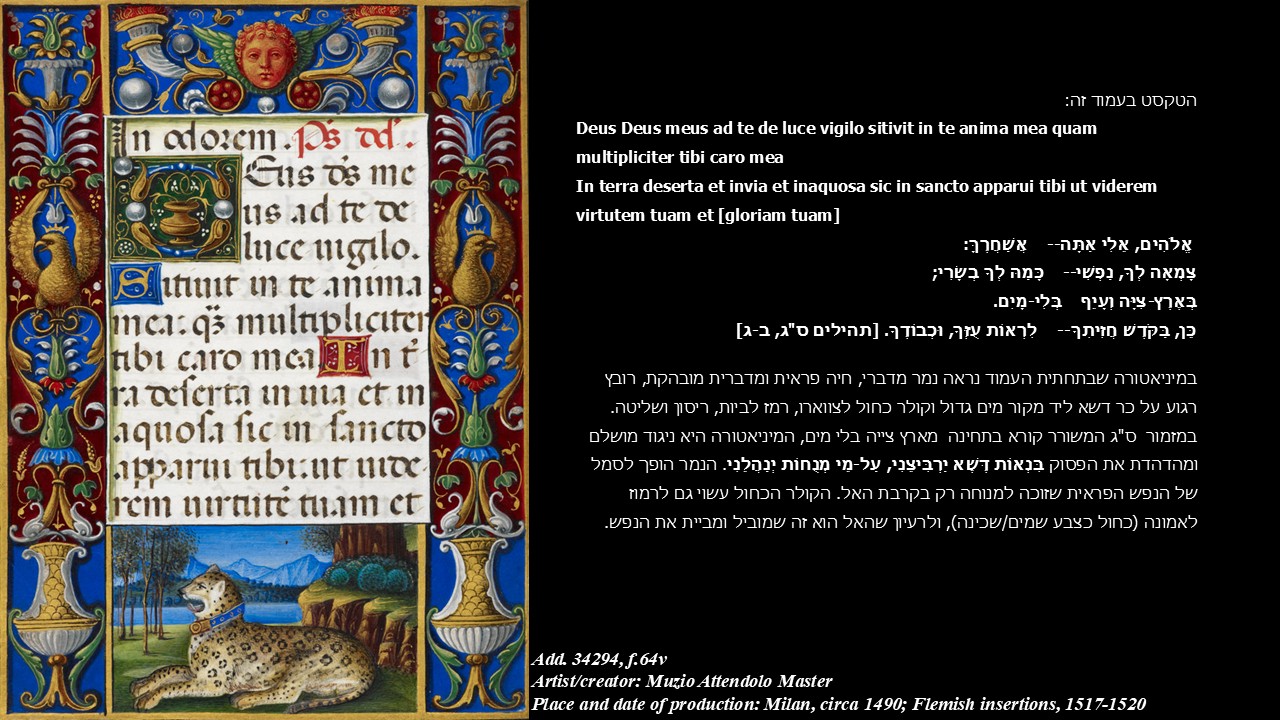 In odorem. Ps̄ dd̄.
Eus ds̄ me
us ad te de
luce uigilo.
Sitiuit in te anima
mea: qȝ̄ multipliciter
tibi caro mea In t̄
ra deserta in uia et in
aquosa sic in sancto
apparui tibi: ut uide-
rem uirtutē tuam et
הטקסט בעמוד זה:
Deus Deus meus ad te de luce vigilo sitivit in te anima mea quam
multipliciter tibi caro mea
In terra deserta et invia et inaquosa sic in sancto apparui tibi ut viderem
virtutem tuam et [gloriam tuam]
אֱלֹהִים, אֵלִי אַתָּה-- אֲשַׁחֲרֶךָּ:
צָמְאָה לְךָ, נַפְשִׁי-- כָּמַהּ לְךָ בְשָׂרִי;
בְּאֶרֶץ-צִיָּה וְעָיֵף בְּלִי-מָיִם.
כֵּן, בַּקֹּדֶשׁ חֲזִיתִךָ-- לִרְאוֹת עֻזְּךָ, וּכְבוֹדֶךָ. [תהילים ס"ג, ב-ג]
במיניאטורה שבתחתית העמוד נראה נמר מדברי, חיה פראית ומדברית מובהקת, רובץ
רגוע על כר דשא ליד מקור מים גדול וקולר כחול לצווארו, רמז לביות, ריסון ושליטה.
במזמור ס"ג המשורר קורא בתחינה מארץ צייה בלי מים, המיניאטורה היא ניגוד מושלם
ומהדהדת את הפסוק בִּנְאוֹת דֶּשֶׁא יַרְבִּיצֵנִי, עַל-מֵי מְנֻחוֹת יְנַהֲלֵנִי. הנמר הופך לסמל
של הנפש הפראית שזוכה למנוחה רק בקרבת האל. הקולר הכחול עשוי גם לרמוז
לאמונה (כחול כצבע שמים/שכינה), ולרעיון שהאל הוא זה שמוביל ומביית את הנפש.
Add. 34294, f.64v
Artist/creator: Muzio Attendolo Master
Place and date of production: Milan, circa 1490; Flemish insertions, 1517-1520